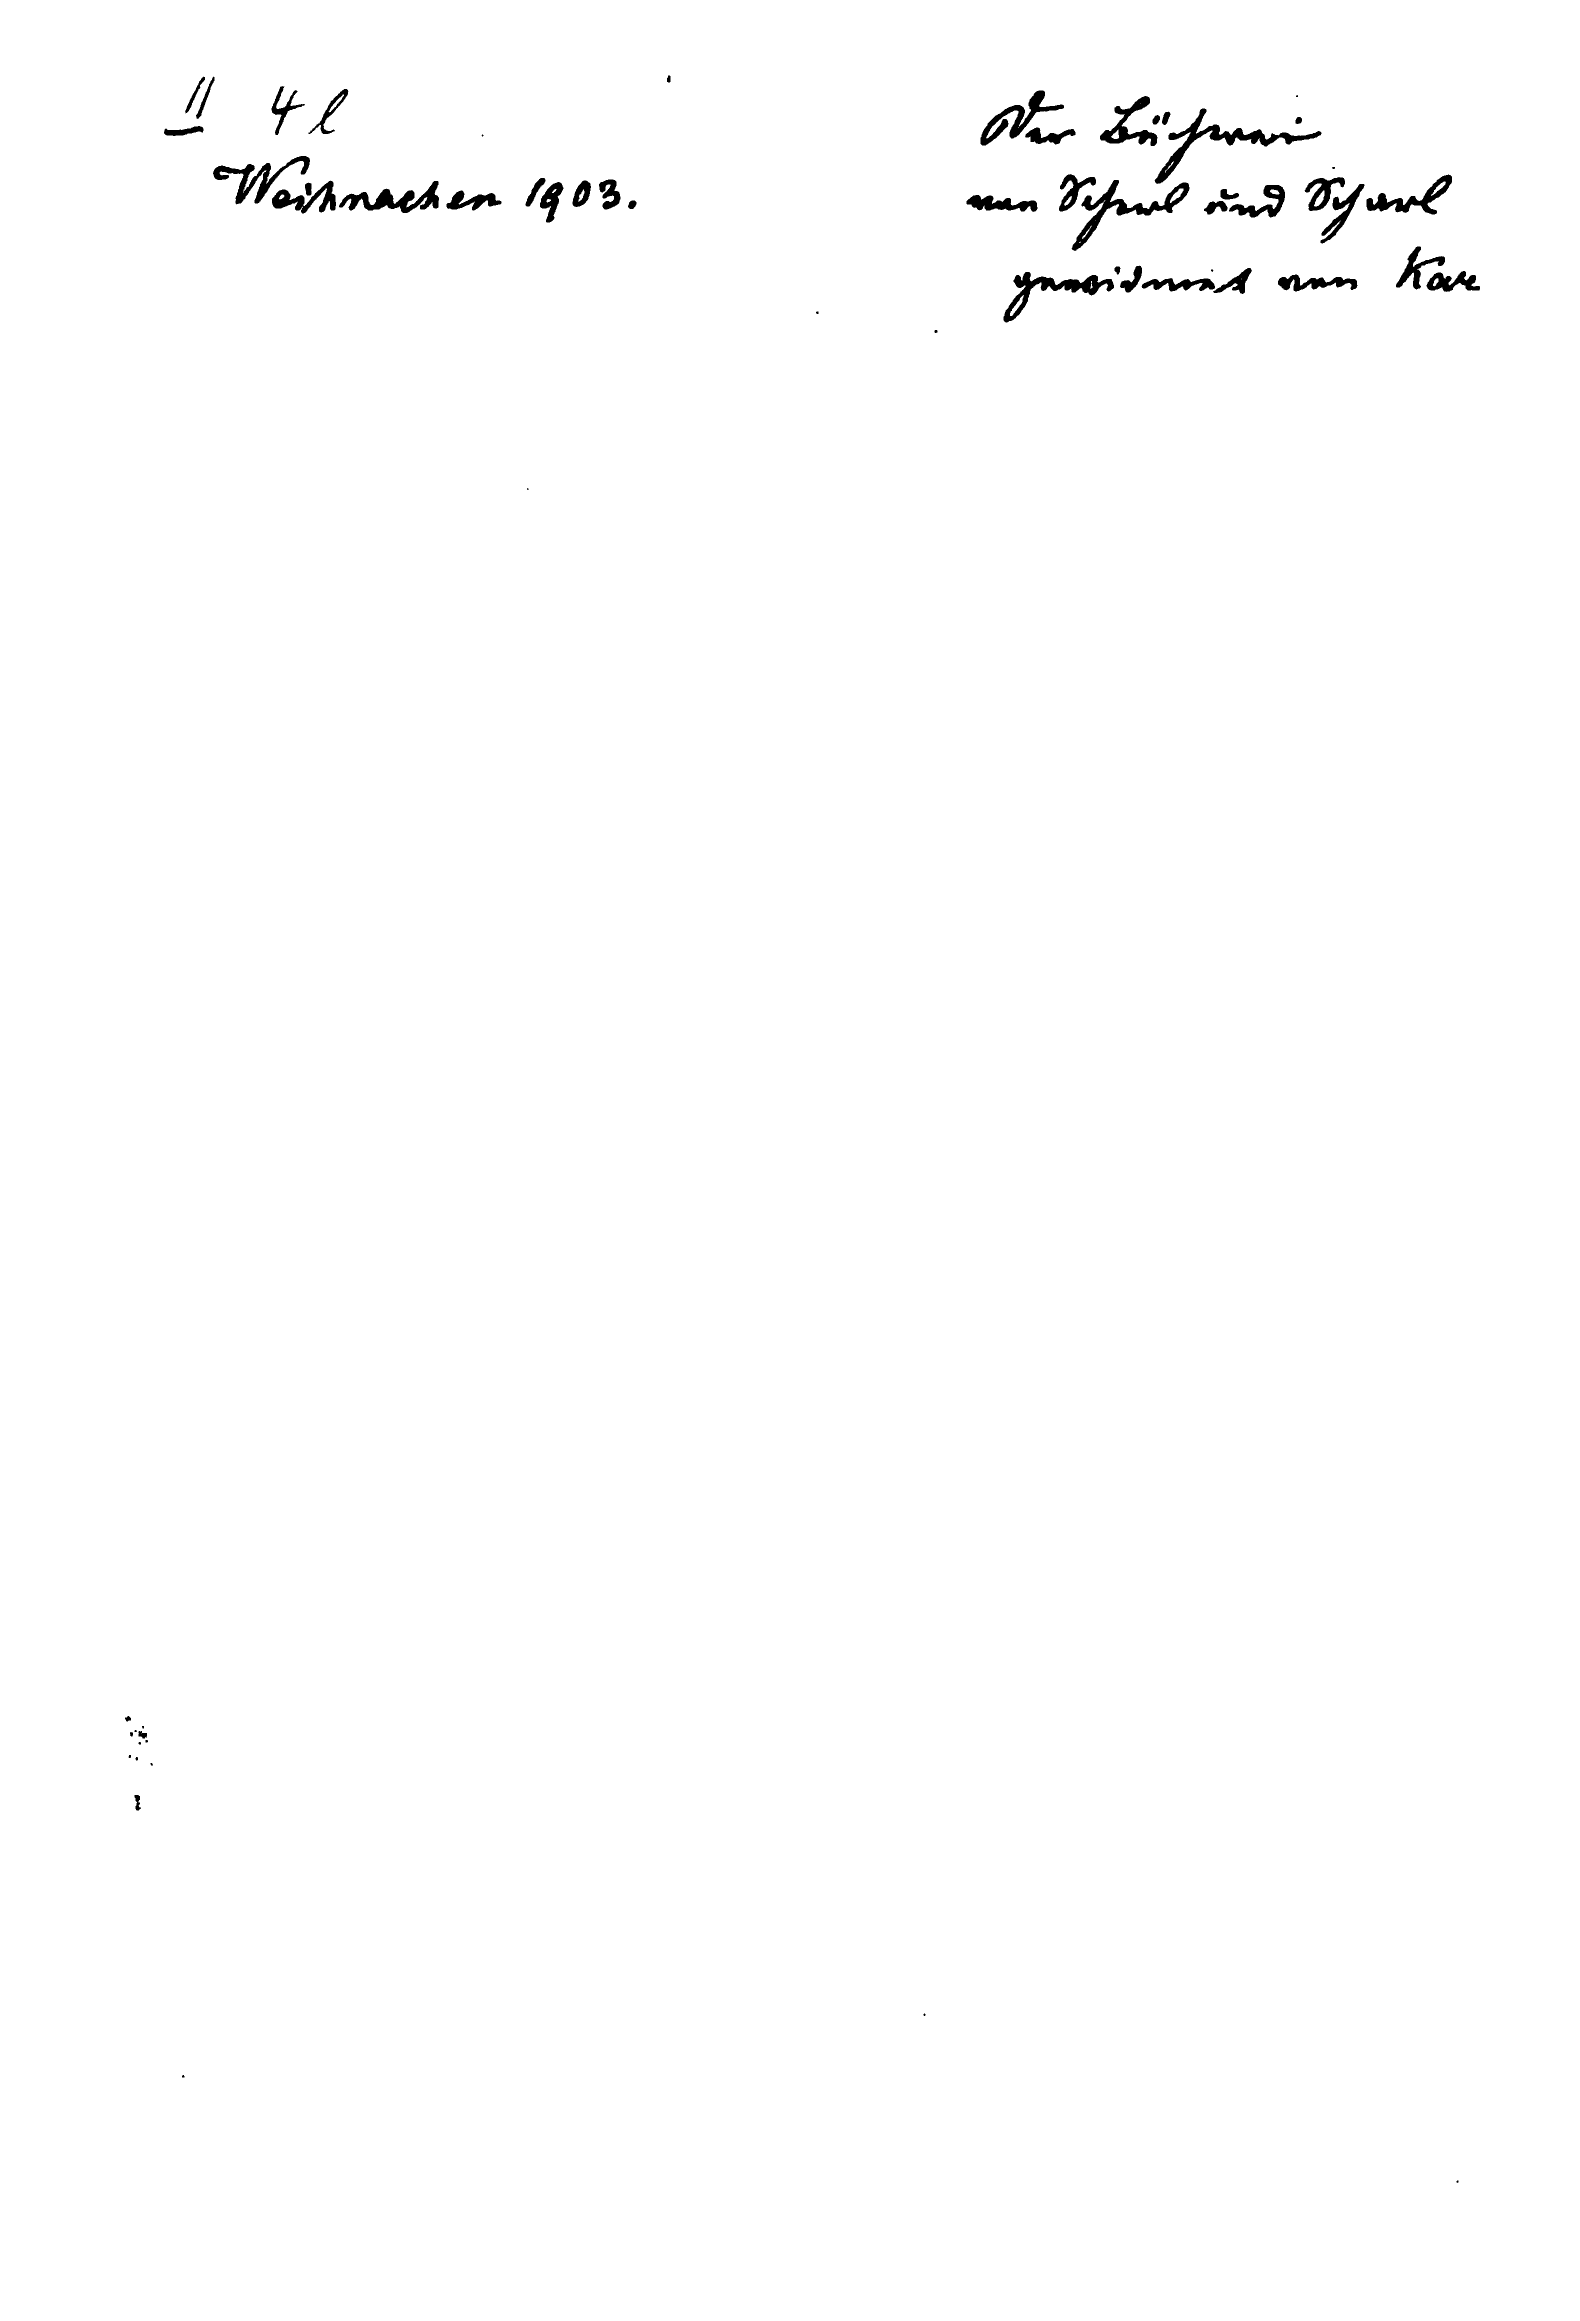 II 4 l
Weihnachen 1903.
Der Bücherei
von Scherl und Scherl
gewidmet von